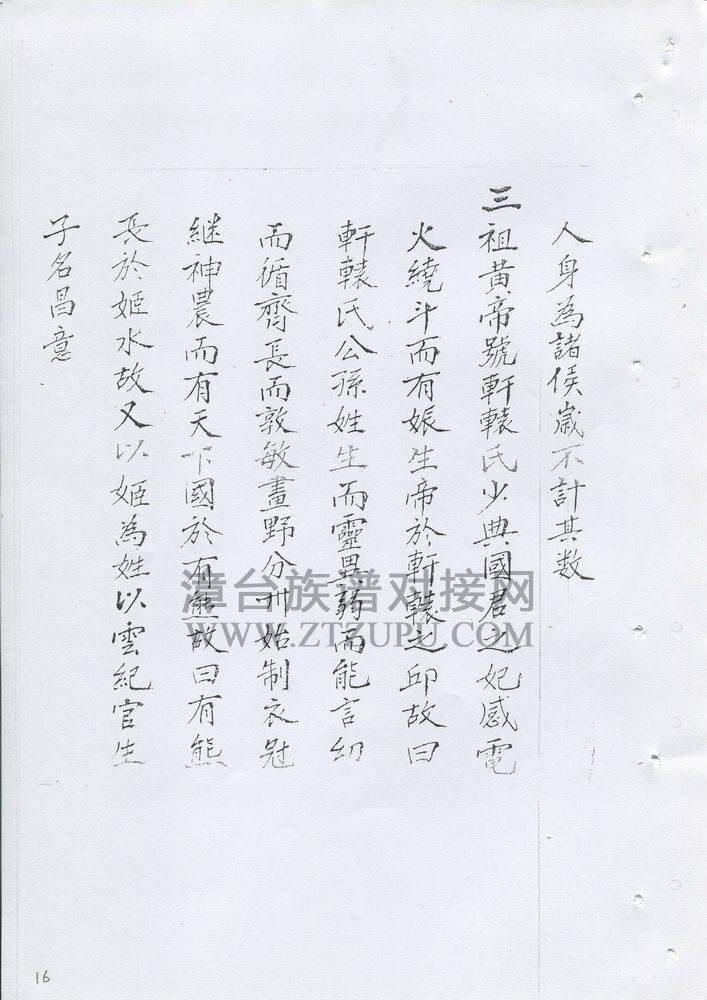 人身為諸侯歲不計其数
三祖黄帝號軒轅氏少典國君之妃感電
火繞斗而有娠生帝於軒轅之邱故曰
軒轅氏公孫姓生而靈異弱而能言幼
而循齊長而敦敏畫野分州始制衣冠
継神農而有天下國於有熊故曰有熊
長於姬水故又以姬為姓以雲紀官生
子名昌意
漳台族谱对接网
WWW.ZTZUPU.COM
16